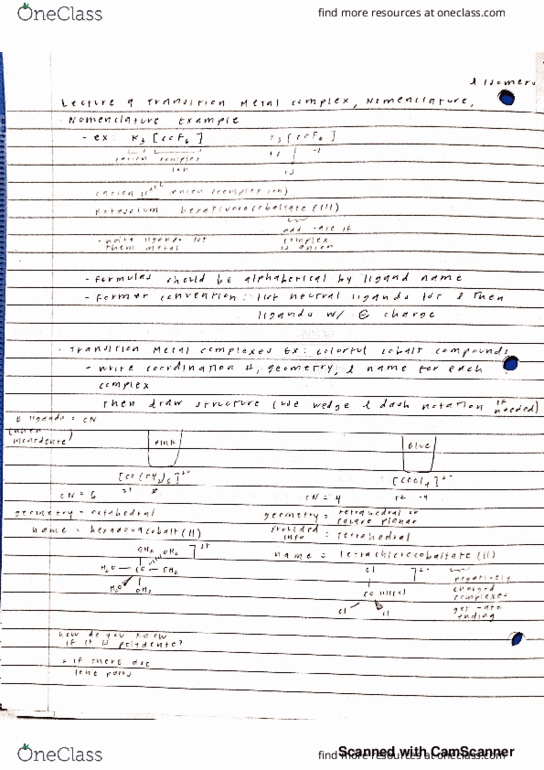 OneClass
find more resources at oneclass.com
& Isomers
Lecture 9 Transition Metal complex, Nomenclature,
Nomenclature Example
- ex: K3 [CoF6] K3[CoF6]
cation complex
ion
potassium hexafluorocobaltate (III)
add -ate if
- write ligands 1st complex
then metal is anion
- Formulas should be alphabetical by ligand name
- Former convention: list neutral ligands 1st & then
ligands w/ ⊖ charge
- Transition Metal complexes Ex: colorful cobalt compounds
- write coordination #, geometry, & name for each
complex
Then draw structure (use wedge & dash notation if needed)
# ligands = CN
(when
monodentate) pink blue
[CoCl4]2-
CN = 6 CN = 4
geometry = octahedral geometry = tetrahedral or
square planar
provided
info : tetrahedral
name = hexaaquacobalt (II)
name = tetrachlorocobaltate (II)
OH2 OH2 2+ Cl 2-
H2O Co OH2 negatively
charged
complexes
H2O OH2 Co Cl
Cl Cl get -ate
ending
how do you know
if it is polydentate?
> if there are
lone pairs
OneClass
find more resources at oneclass.com
Scanned with CamScanner